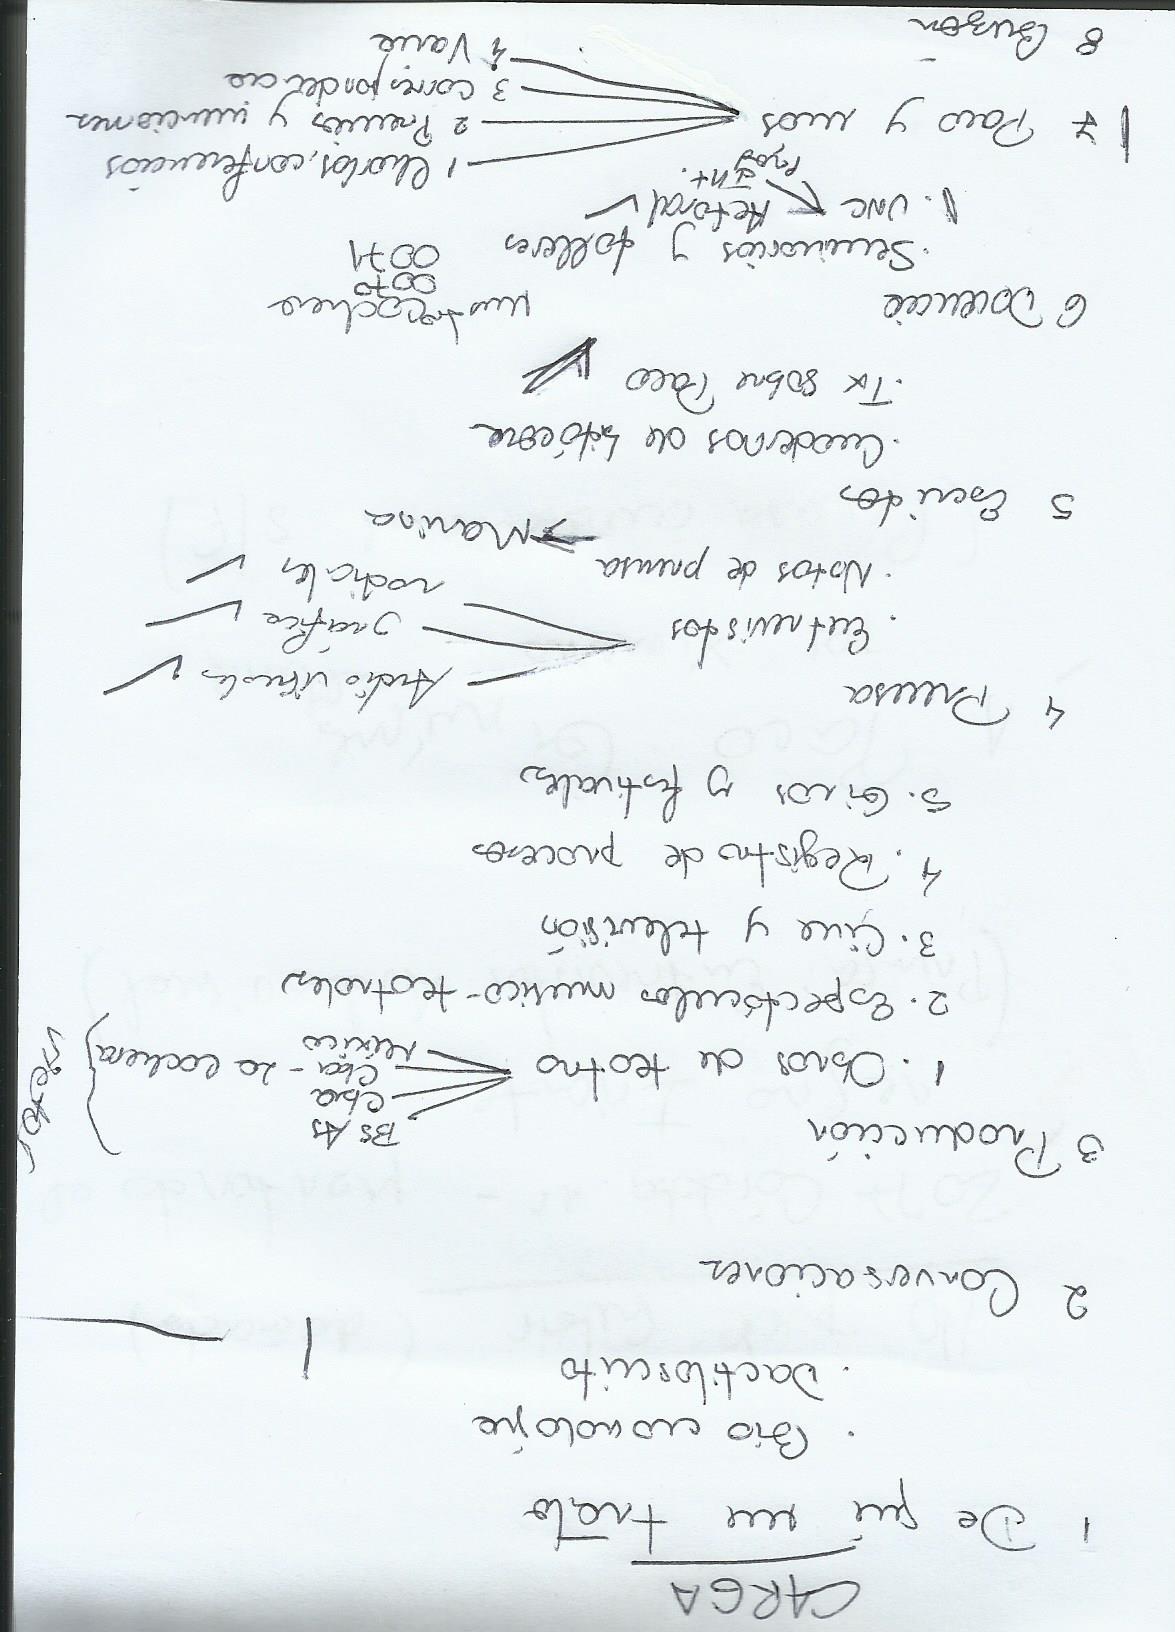 CARGA
1 De qué me trato
. Bio cronología
. Dactiloscrito
2 Conversaciones
3 Producción
1. Obras de teatro
Bs As
Cba
Cba - La Cochera
México
2. Espectáculos músico-teatrales
3. Cine y televisión
4. Registro de procesos
5. Giras y festivales
4 Prensa
. Entrevistas
Audio visuales
gráfica
radiales
. Notas de prensa
Marisa
5 Escritos
. Cuadernos de bitácora
. Tx sobre Paco
6 Docencia
. Seminarios y talleres
0070
0071
1. UNC
Actoral
Int.
7 Paco y más
1 Charlas, conferencias
2 Premios y menciones
3 Correspondencia
4 Varia
8 Buzón